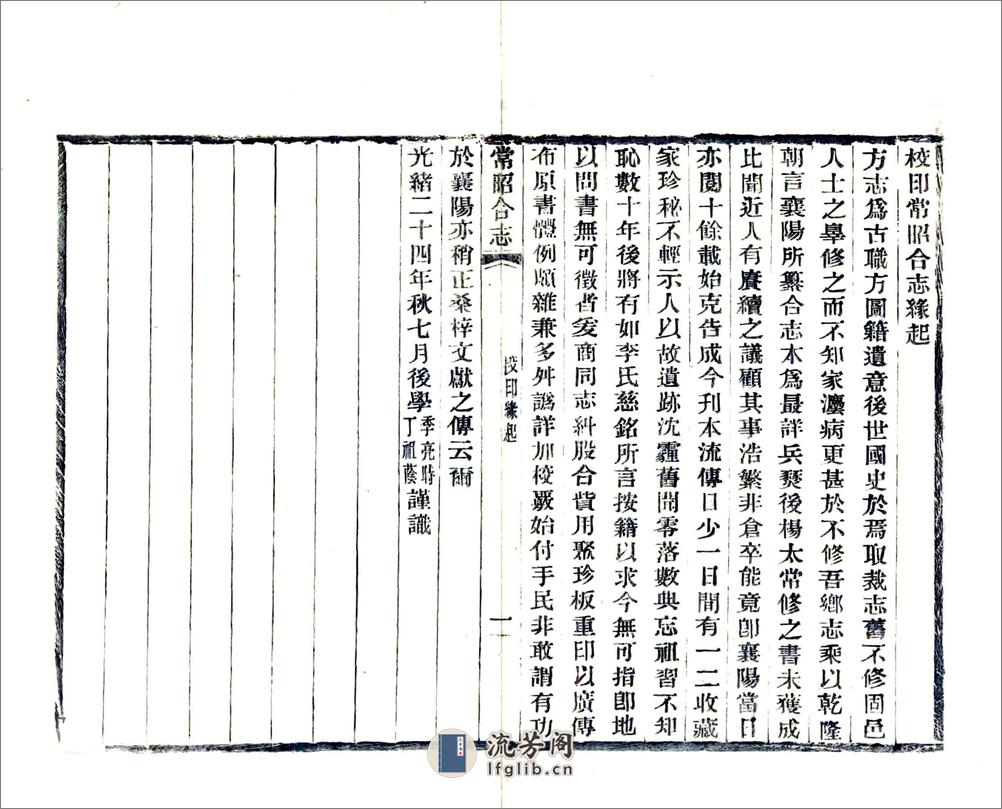 校印常昭合志緣起
方志爲古職方圖籍遺意後世國史於焉取裁志舊不修固邑
人士之辠修之而不知家灋病更甚於不修吾鄉志乘以乾隆
朝言襄陽所纂合志本爲最詳兵燹後楊太常修之書未獲成
比聞近人有賡續之議顧其事浩繁非倉卒能竟卽襄陽當日
亦閱十餘載始克告成今刊本流傳日少一日間有一二收藏
家珍秘不輕示人以故遺跡沈霾舊聞零落數典忘祖習不知
恥數十年後將有如李氏慈銘所言按籍以求今無可指卽地
以問書無可徵者爰商同志糾股合貲用聚珍板重印以廣傳
布原書體例頗雜兼多舛譌詳加校覈始付手民非敢謂有功
常昭合志
校印緣起
一
於襄陽亦稍正桑梓文獻之傳云爾
光緒二十四年秋七月後學季亮時丁祖蔭謹識
流芳阁
lfglib.cn